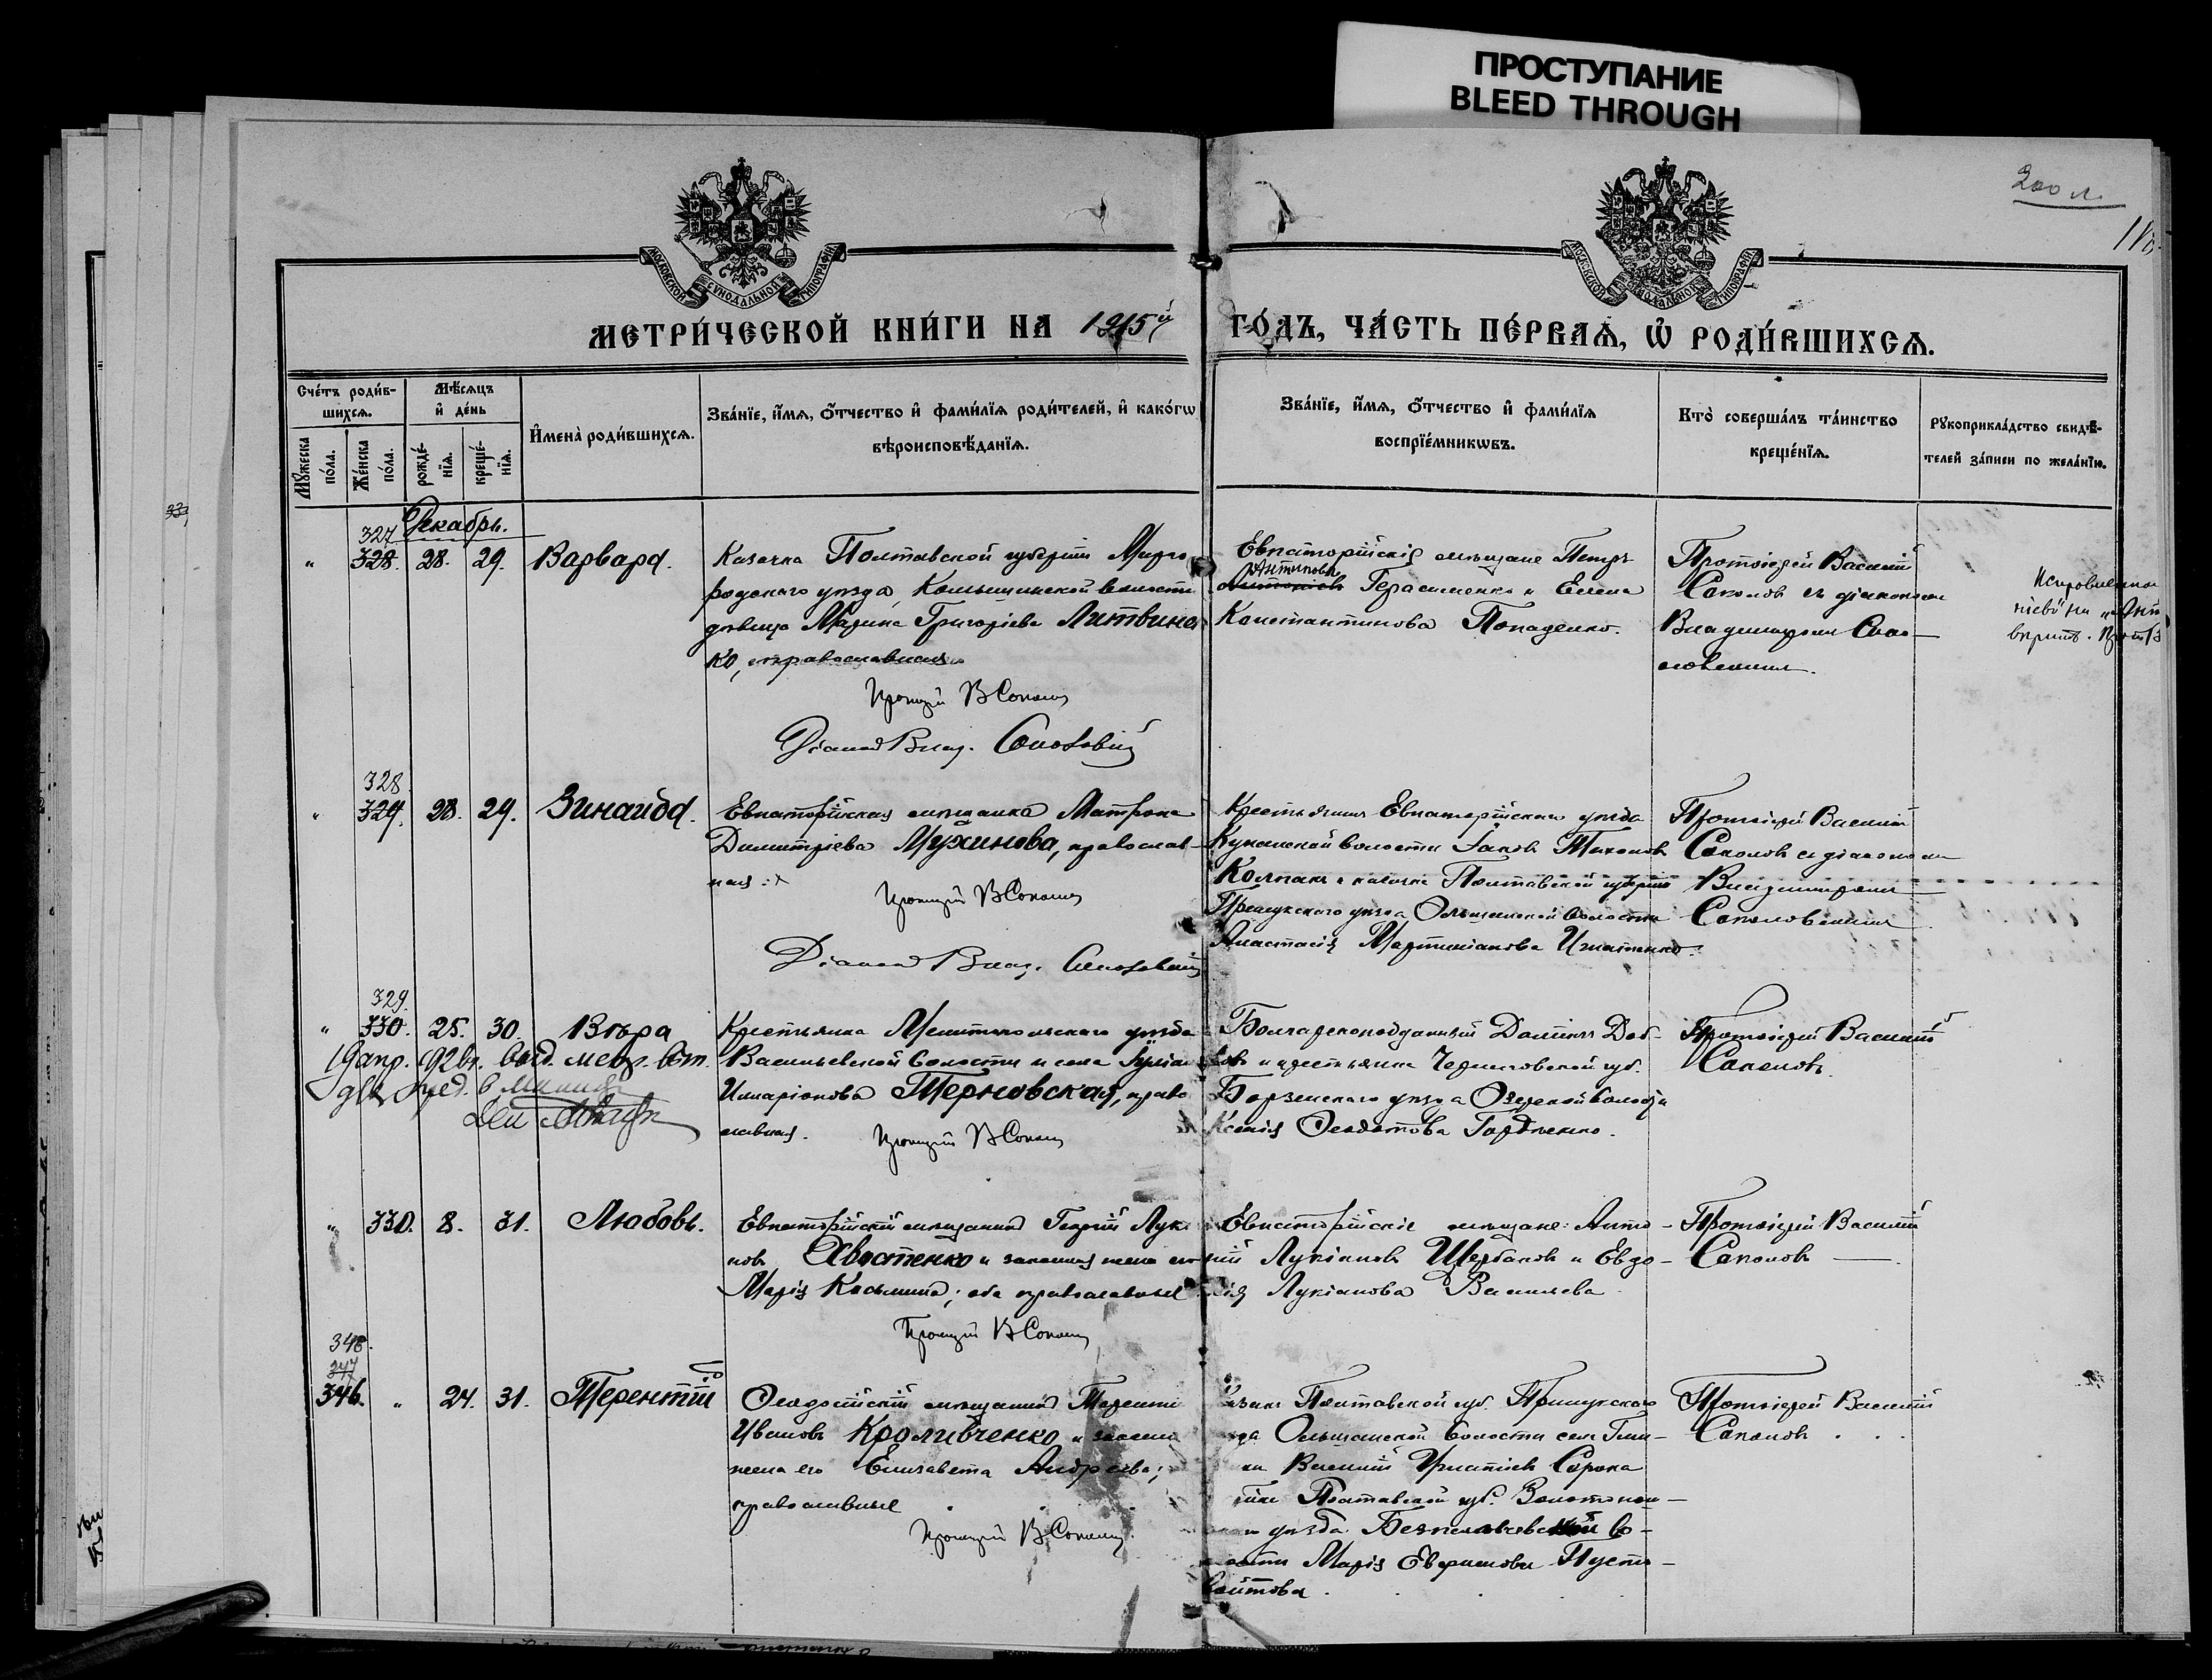 ПРОСТУПАНИЕ
BLEED THROUGH
200 л.
МОСКОВСКОЙ СѴНОДАЛЬНОЙ ТИПОГРАФІИ
МОСКОВСКОЙ СѴНОДАЛЬНОЙ ТИПОГРАФІИ
МЕТРИ́ЧЕСКОЙ КНИ́ГИ НА 1915й ГО́ДЪ, ЧА́СТЬ ПЕ́РВАѦ, Ѽ РОДИ́ВШИХСѦ.
Сче́тъ роди́в-
шихсѧ.
Мꙋ́жеска по́ла.
Же́нска по́ла.
Мѣ́сѧцъ
и҆ де́нь
рожде́-нїѧ.
креще́-нїѧ.
И҆мена̀ роди́вшихсѧ.
Зва́нїе, и҆́мѧ, ѻ҆́тчество и҆ фами́лїѧ роди́телей, и҆ како́гѡ
вѣроисповѣ́данїѧ.
Зва́нїе, и҆́мѧ, ѻ҆́тчество и҆ фами́лїѧ
воспрїе́мникѡвъ.
Кто̀ соверша́лъ та́инство
креще́нїѧ.
Рꙋкоприкла́дство свидѣ́-
телей за́писи по жела́нїю.
Декабрь.
327
328. 28. 29. Варвара.
Казачка Полтавской губерніи Мирго
родскаго уѣзда, Комышинской волости
дѣвица Марина Григоріева Литвинен
ко, православная
Протоіерей В Соколов
Діаконъ Влад. Соколовскій
Евпаторійскіе мѣщане Петръ
Антиповъ
Герасименко и Елена
Константинова Попаденко.
Протоіерей Василій
Соколовъ съ діакономъ
Владимиромъ Соко-
ловскимъ.
Исправленно
328
329. 28. 29. Зинаида.
Евпаторійская мѣщанка Матрона
Димитріева Мухинова, православ-
ная
Протоіерей В Соколов
Діаконъ Влад. Соколовскій
Крестьянинъ Евпаторійскаго уѣзда
волости Іаковъ Тихоновъ
Колпакъ и казачка Полтавской губерніи
Прилукскаго уѣзда Ольшанской волости
Анастасія Мартиніанова Игнатенко.
Протоіерей Василій
Соколовъ съ діакономъ
Владимиромъ
Соколовскимъ
329.
330. 25. 30. Вѣра
19 апр. 92 выд. метр. вып.
Крестьянка Мелитопольскаго уѣзда
Васильевской волости и села
Иларіонова Терновская, право
славная.
Протоіерей В Соколов
Болгарскоподданный
и крестьянка Черниговской губ.
Борзенскаго уѣзда Озерской волости
Ксенія Ѳеодотова Гордіенко.
Протоіерей Василій
Соколовъ.
330. 8. 31. Любовь.
Евпаторійскій мѣщанинъ Георгій Луки
новъ Хвостенко и законная жена его
Марія Косьмина; оба православные
Протоіерей В Соколов
Евпаторійскіе мѣщане: Анто-
ній Лукіановъ Щербаковъ и Евдо-
кія Лукіанова Васильева
Протоіерей Василій
Соколовъ
348.
347
346. 24. 31. Терентій
Ѳеодосійскій мѣщанинъ
Ивановъ Кроливченко и законная
жена его Елизавета Андреева;
православные
Протоіерей В Соколов.
Полтавской губ. Прилукскаго
Ольшанской волости села
Василій Игнатіевъ Сорока
Полтавской губ. Золотонош-
уѣзда во-
лости Марія Евфимова Пусто-
войтова.
Протоіерей Василій
Соколовъ